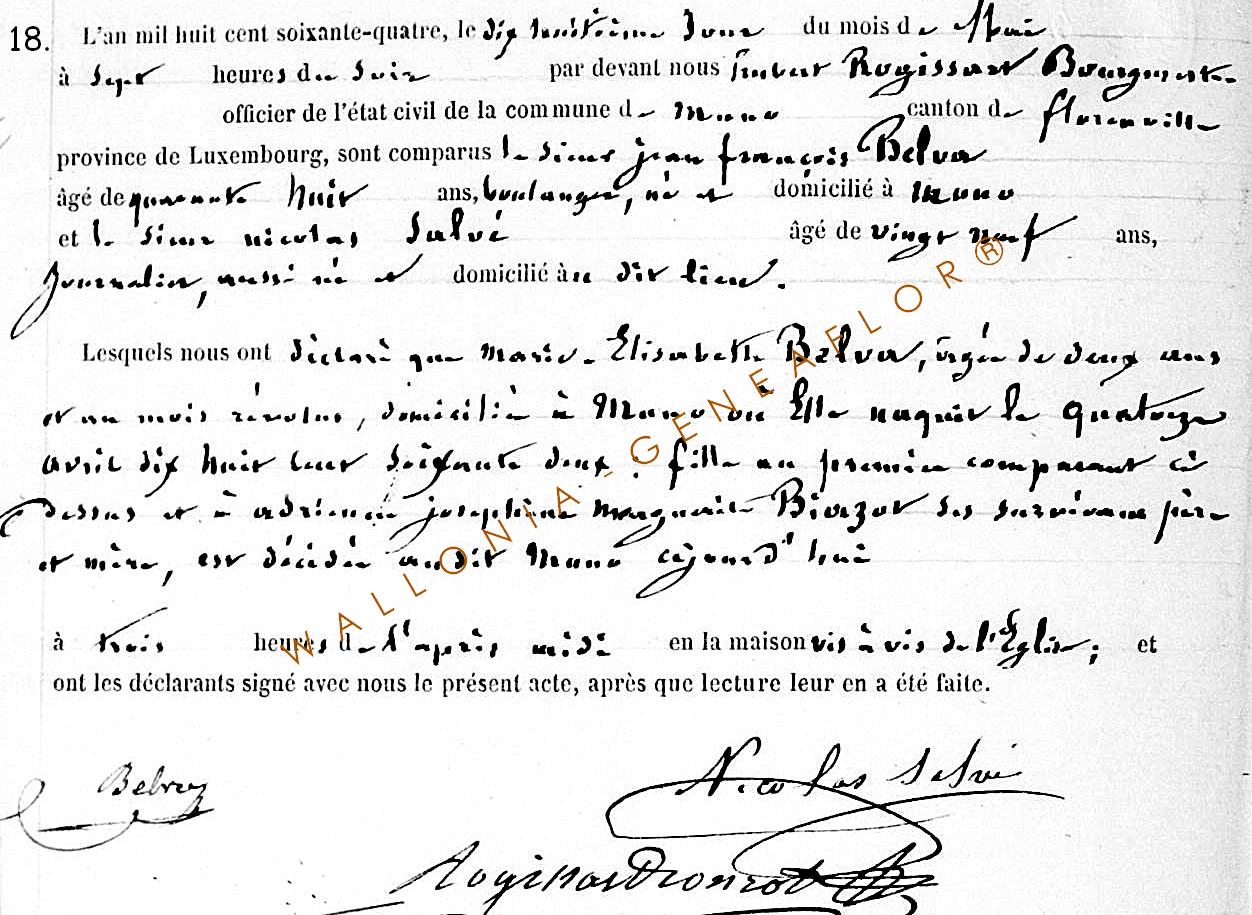 18. L'an mil huit cent soixante-quatre, le dix huitième Jour du mois de Mai
à Sept heures du Soir par devant nous Hubert Rogissart Bourgmestre
officier de l'état civil de la commune de Muno canton de florenville
province de Luxembourg, sont comparus le Sieur jean françois Belva
âgé de quarante huit ans, boulanger, né et domicilié à Muno
et le Sieur nicolas Salvé âgé de vingt neuf ans,
Journalier, aussi né et domicilié au dit lieu.
Lesquels nous ont déclaré que Marie-Elisabeth Belva, âgée de deux ans
et un mois révolus, domiciliée à Muno où Elle naquit le quatorze
avril dix huit cent soixante deux, fille au premier comparant ci
dessus et à adrienne josephine Marguerite ses survivans père
et mère, est décédée au dit Muno cejourd'hui
à trois heures de l'après midi en la maison vis à vis de l'Eglise; et
ont les déclarants signé avec nous le présent acte, après que lecture leur en a été faite.
Nicolas Salvé
WALLONIA-GENEAFLOR®